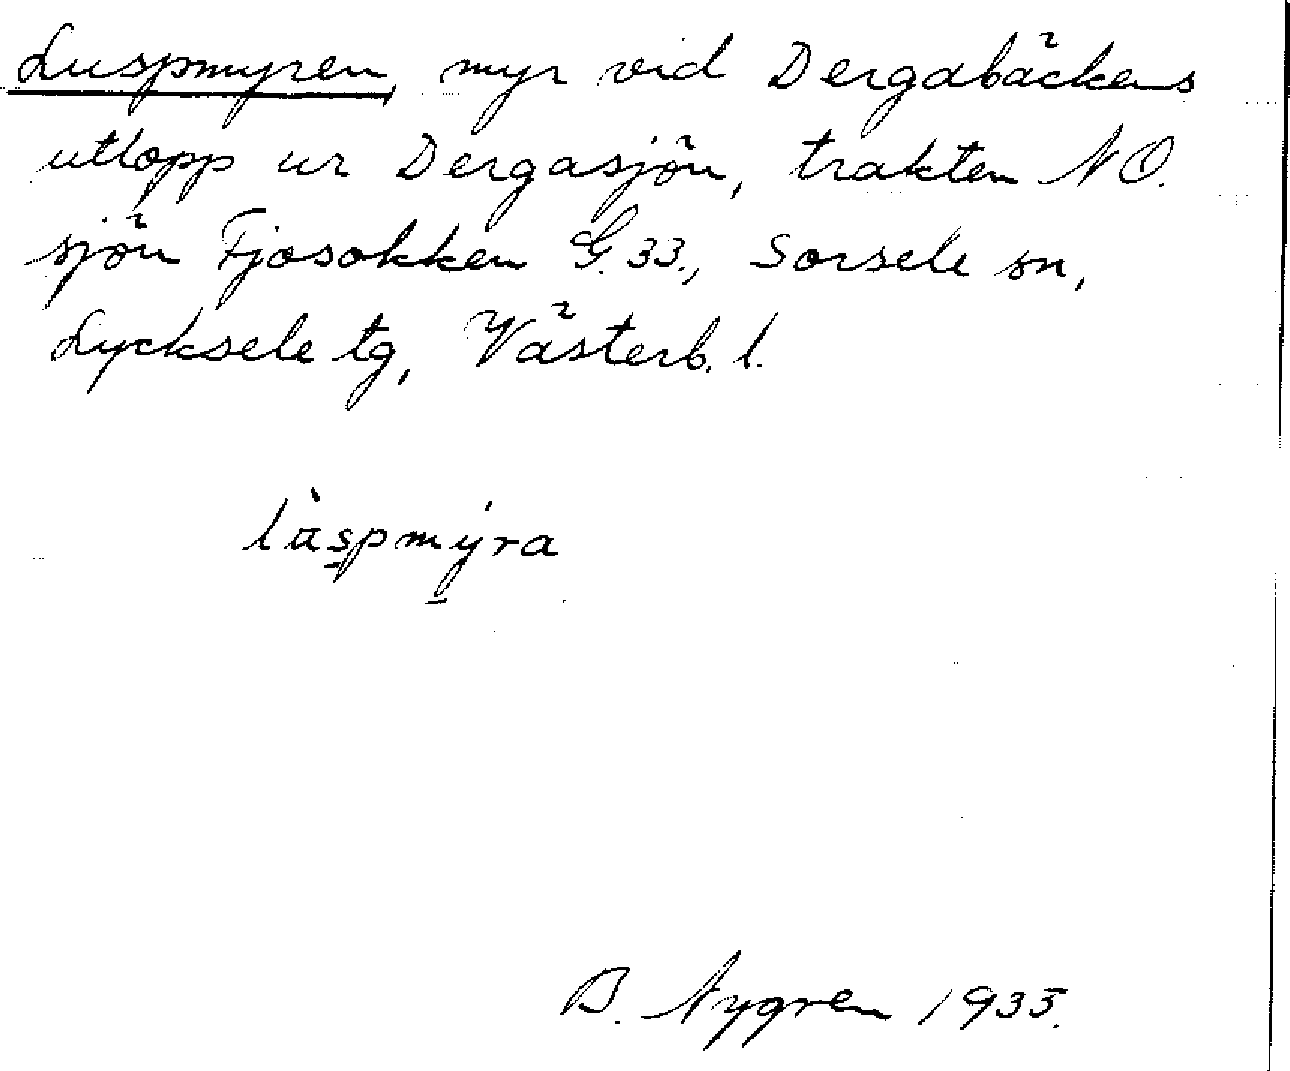 Luspmyren, myr vid Dergabäckens
utlopp ur Dergasjön, trakten NO.
sjön Fjosokken G. 33., Sorsele sn,
Lycksele tg, Västerb. l.
lùspmýra
B. Nygren 1935.